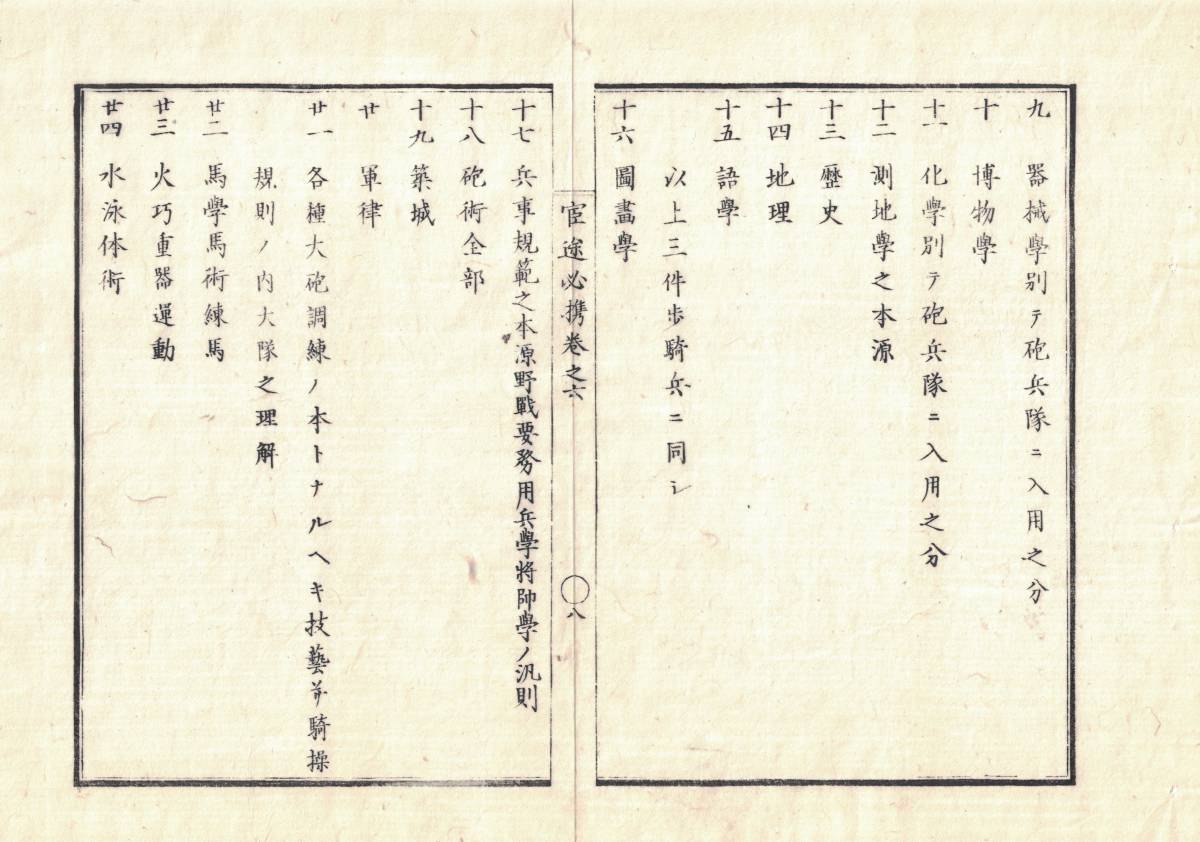 九 器械學別テ砲兵隊ニ入用之分
十 博物學
十一 化學別テ砲兵隊ニ入用之分
十二 測地學之本源
十三 歷史
十四 地理
十五 語學
以上三件步騎兵ニ同シ
十六 圖畫學
宦途必携卷之六
八
十七 兵事規範之本源野戰要務用兵學將帥學ノ汎則
十八 砲術全部
十九 築城
廿 軍律
廿一 各種大砲調練ノ本トナルヘキ技藝并騎操
規則ノ內大隊之理解
廿二 馬學馬術練馬
廿三 火巧重器運動
廿四 水泳体術